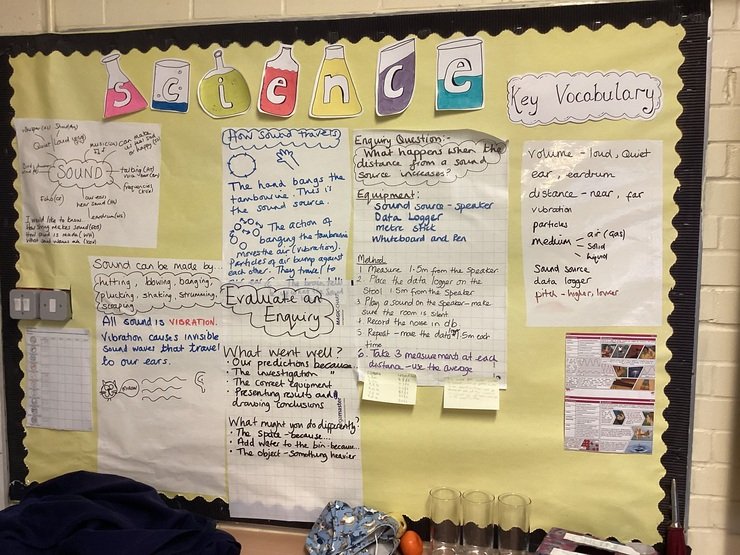 science
Key Vocabulary
Quiet loud
music
can make
SOUND
talking
frequencies
Echo
our ears
hear sound
eardrum
I would like to know.
How string makes sound
How sound is made
What sound waves are
How sound travels
The hand bangs the
tambourine. This is
the sound source.
The action of
banging the tambourine
moves the air (vibration).
Particles of air bump against
each other. They travel to
Enquiry Question:-
What happens when the
distance from a sound
source increases?
Equipment:
Sound source - speaker
Data Logger
metre stick
Whiteboard and Pen
Method
1 Measure 1.5m from the speaker
2 Place the data logger on the
stool 1.5m from the speaker
3 Play a sound on the speaker - make
sure the room is silent
4 Record the noise in db
5 Repeat - move the data 1.5m each
time
6. Take 3 measurements at each
distance - use the average
volume - loud, Quiet
ear, eardrum
distance - near, far
vibration
particles
medium
air (gas)
solid
liquid
Sound source
data logger
pitch - higher, lower
Sound can be made by...
hitting, blowing, banging,
plucking, shaking, strumming,
scraping
All sound is VIBRATION.
Vibration causes invisible
Sound waves that travel
to our ears.
Evaluate an
Enquiry
What went well?
• Our predictions because
• The investigation "
• The correct equipment
• Presenting results and
drawing conclusions
What might you do differently?
• The space - because...
• Add water to the bin - because...
• The object - something heavier